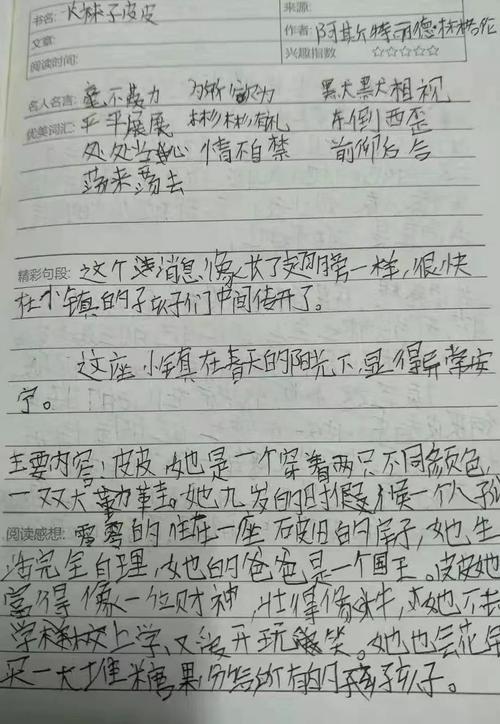 书名: 长袜子皮皮 来源:
文章: 作者: 阿斯特丽德·林格伦
阅读时间: 兴趣指数 ☆☆☆☆☆
名人名言: 毫不费力 默默相视
优美词汇: 平平展展 彬彬有礼 东倒西歪
处处当心 情不自禁 前仰后合
荡来荡去
精彩句段: 这个消息像长了翅膀一样,很快
在小镇的孩子们中间传开了。
这座小镇在春天的阳光下,显得异常安
宁。
主要内容: 皮皮她是一个穿着两只不同颜色,
一双大鞋。她九岁的时候一个人
阅读感想: 零零的住在一座破旧的房子,她生
活完全自理,她的爸爸是一个国王。皮皮她
富得像一位财神,壮得像牛,她不去
学校上学,又没开玩笑。她也会花
买一大堆糖果分给所有的孩子。